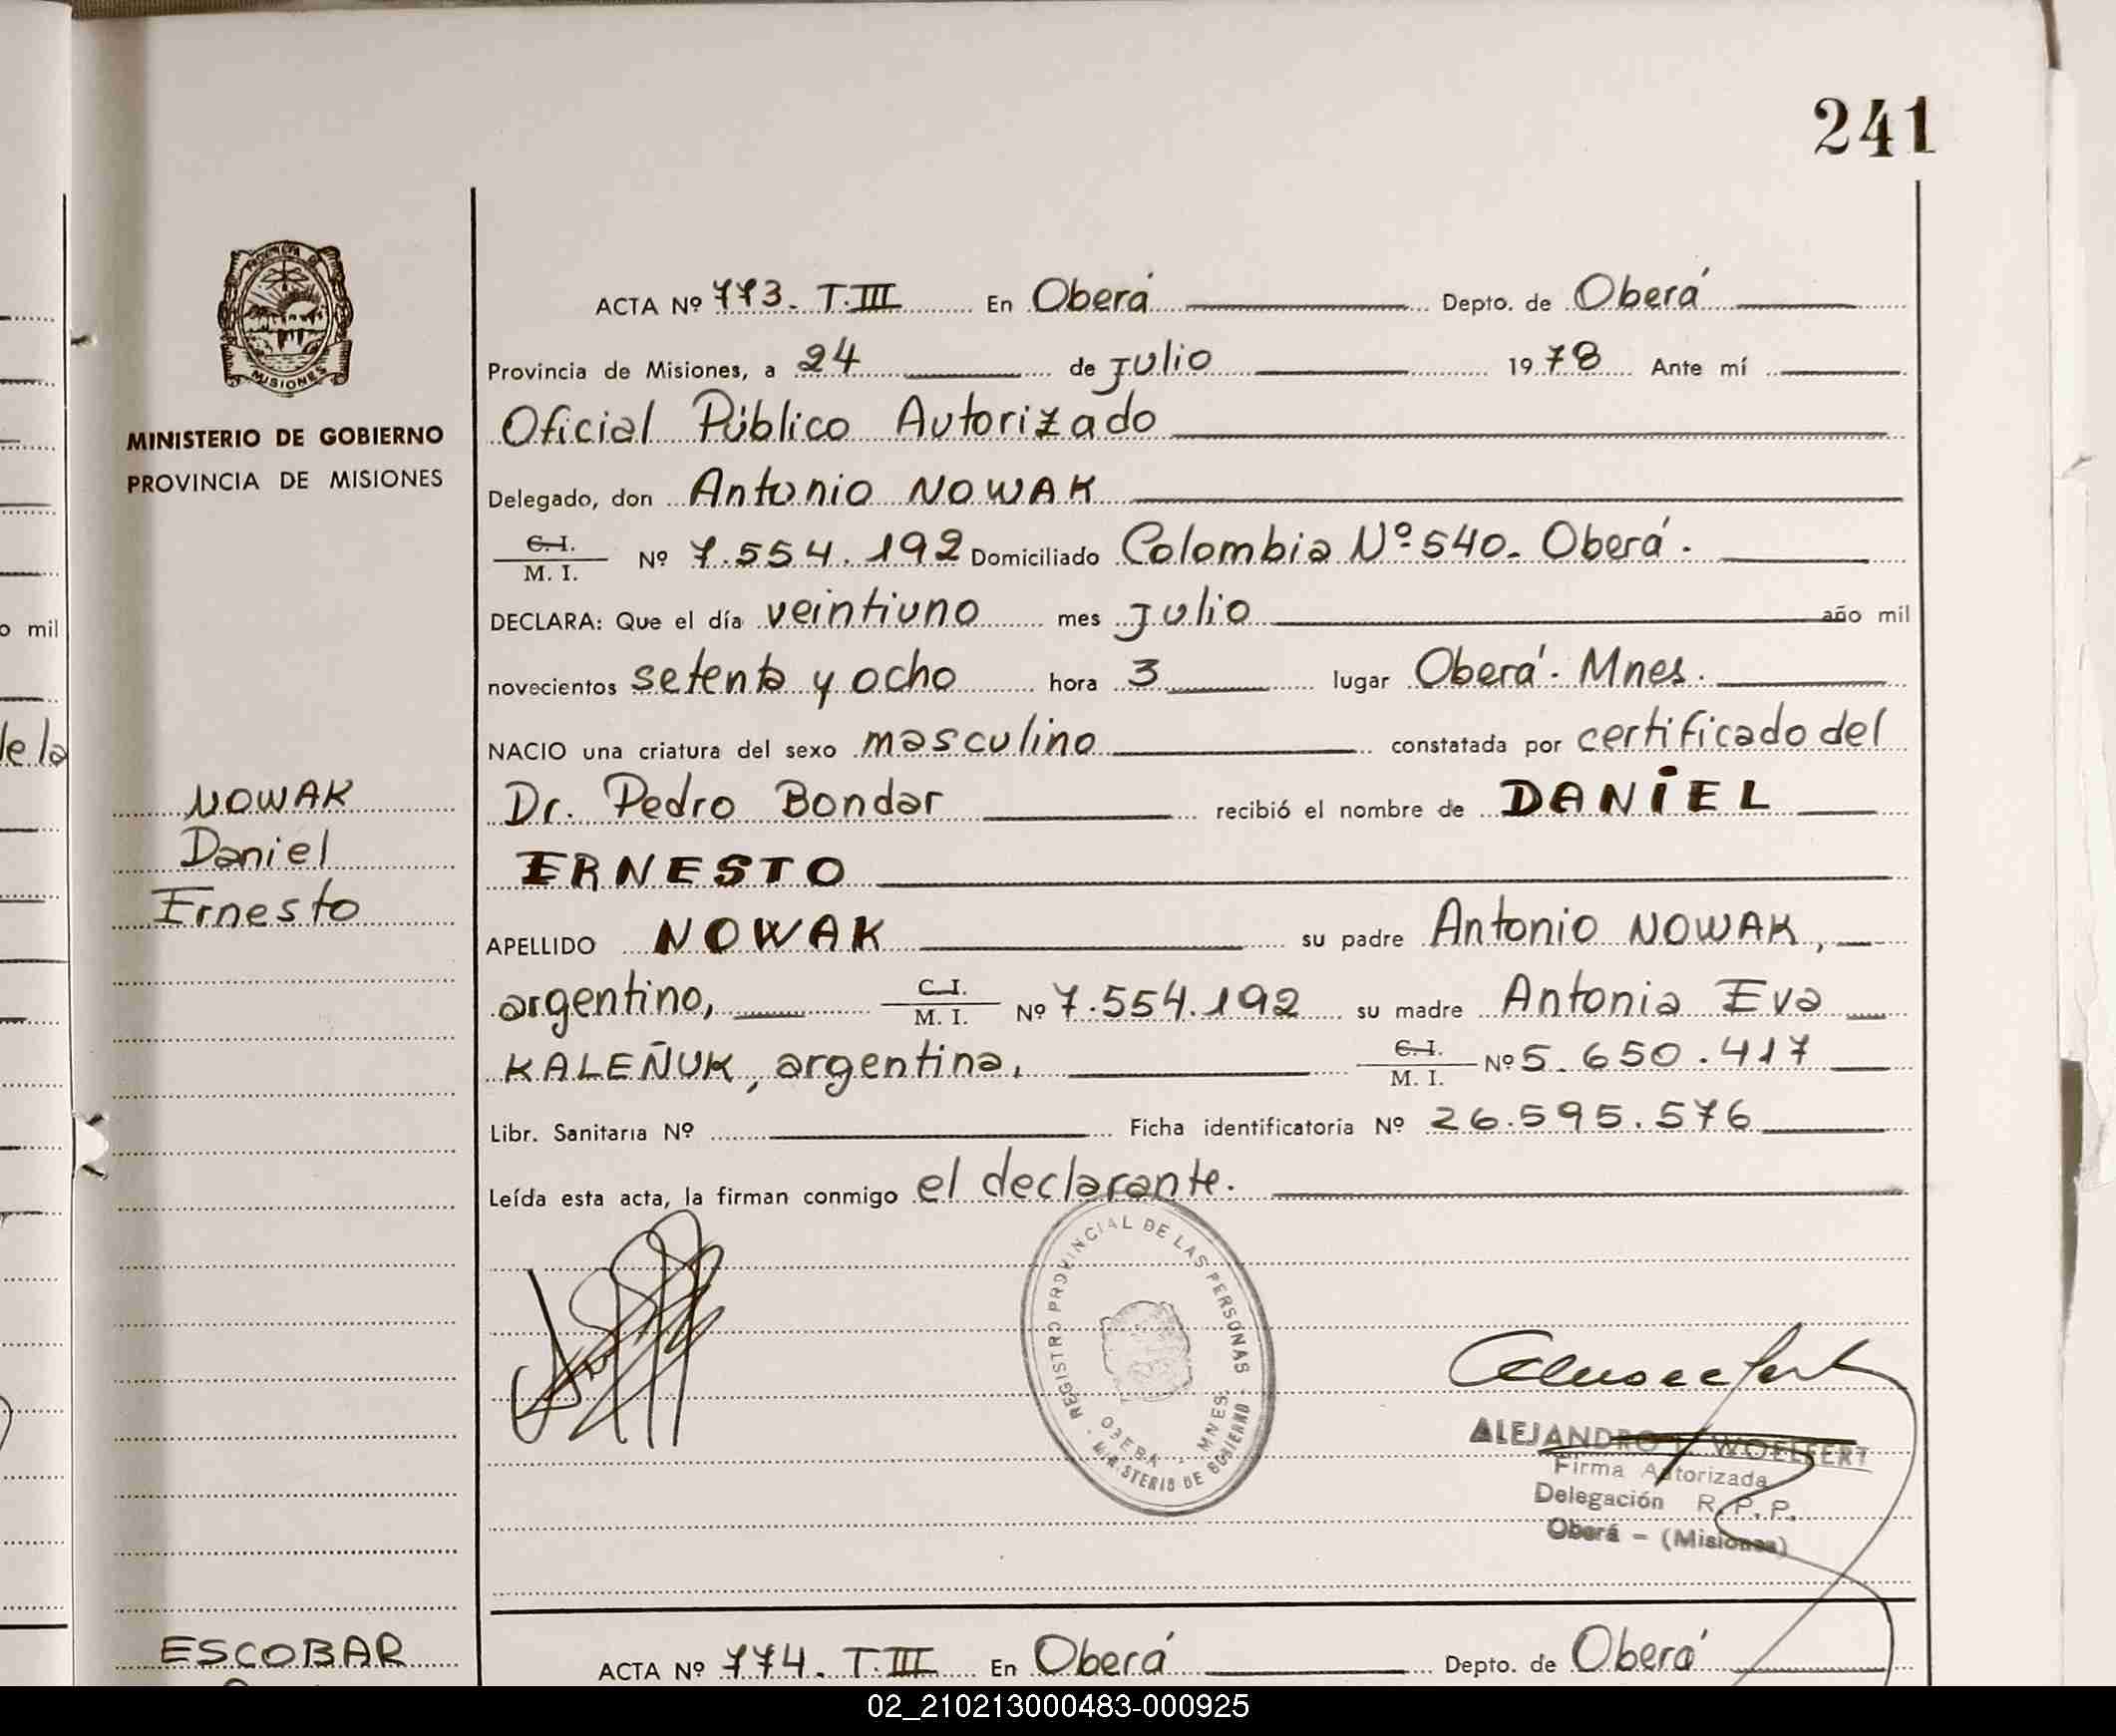 241
PROVINCIA DE
MISIONES
MINISTERIO DE GOBIERNO
PROVINCIA DE MISIONES
ACTA Nº 773. T.III En Oberá Depto. de Oberá
Provincia de Misiones, a 24 de Julio 1978 Ante mí
Oficial Público Autorizado
Delegado, don Antonio NOWAK
C.I. / M. I. Nº 7.554.192 Domiciliado Colombia Nº 540. Oberá.
DECLARA: Que el día veintiuno mes Julio año mil
novecientos setenta y ocho hora 3 lugar Oberá. Mnes.
NACIO una criatura del sexo masculino constatada por certificado del
Dr. Pedro Bondar recibió el nombre de DANiEL
ERNESTO
APELLIDO NOWAK su padre Antonio NOWAK,
argentino, C.I. / M. I. Nº 7.554.192 su madre Antonia Eva
KALEÑUK, argentina, C.I. / M. I. Nº 5.650.417
Libr. Sanitaria Nº Ficha identificatoria Nº 26.595.576
Leída esta acta, la firman conmigo el declarante.
NOWAK
Daniel
Ernesto
o mil
de la
REGISTRO PROVINCIAL DE LAS PERSONAS
OBERA - MNES.
MINISTERIO DE GOBIERNO
ALEJANDRO WOELFERT
Firma Autorizada
Delegación R.P.P.
Oberá - (Misiones)
ESCOBAR
ACTA Nº 774. T.III En Oberá Depto. de Oberá
02_210213000483-000925